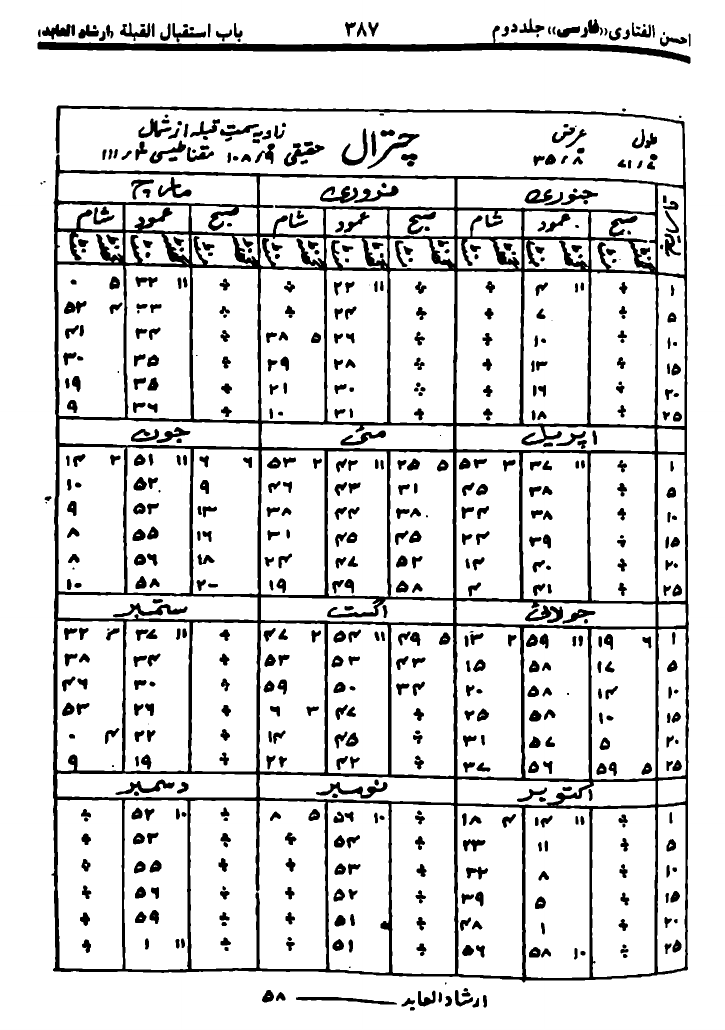 احسن الفتاویٰ «فارسی» جلد دوم ۳۸۷ باب استقبال القبلة (ارشاد العابد)
طول عرض ۳۵/۸ چترال زاویہ سمت قبلہ از شمال
حقیقی ۱۰۸/۹ مقناطیسی
جنوری فروری مارچ
صبح عمود شام صبح عمود شام صبح عمود شام
گھنٹہ منٹ گھنٹہ منٹ گھنٹہ منٹ گھنٹہ منٹ گھنٹہ منٹ گھنٹہ منٹ گھنٹہ منٹ گھنٹہ منٹ گھنٹہ منٹ
۱ ÷ ۱۱ ۴ ÷ ÷ ۱۱ ۲۲ ÷ ÷ ۱۱ ۳۲ ۵ ۰
۵ ÷ ۷ ÷ ÷ ۲۴ ÷ ÷ ۳۳ ۴ ۵۲
۱۰ ÷ ۱۰ ÷ ÷ ۲۶ ۵ ۳۸ ÷ ۳۴ ۴۱
۱۵ ÷ ۱۳ ÷ ÷ ۲۸ ۲۹ ÷ ۳۵ ۳۰
۲۰ ÷ ۱۶ ÷ ÷ ۳۰ ۲۱ ÷ ۳۵ ۱۹
۲۵ ÷ ۱۸ ÷ ÷ ۳۱ ۱۰ ÷ ۳۶ ۹
اپریل مئی جون
۱ ÷ ۱۱ ۳۷ ۳ ۵۳ ۵ ۲۵ ۱۱ ۴۲ ۲ ۵۳ ۶ ۶ ۱۱ ۵۱ ۲ ۱۴
۵ ÷ ۳۸ ۴۵ ۳۱ ۴۳ ۴۶ ۹ ۵۲ ۱۰
۱۰ ÷ ۳۸ ۳۴ ۳۸ ۴۴ ۳۸ ۱۳ ۵۳ ۹
۱۵ ÷ ۳۹ ۲۴ ۴۵ ۴۵ ۳۱ ۱۶ ۵۵ ۸
۲۰ ÷ ۴۰ ۱۴ ۵۲ ۴۷ ۲۴ ۱۸ ۵۶ ۸
۲۵ ÷ ۴۱ ۴ ۵۸ ۴۹ ۱۹ ۲۰ ۵۸ ۱۰
جولائی اگست ستمبر
۱ ۶ ۱۹ ۱۱ ۵۹ ۲ ۱۳ ۵ ۴۹ ۱۱ ۵۴ ۲ ۴۷ ÷ ۱۱ ۳۷ ۳ ۳۲
۵ ۱۷ ۵۸ ۱۵ ۴۳ ۵۳ ۵۳ ÷ ۳۴ ۳۸
۱۰ ۱۴ ۵۸ ۲۰ ۳۴ ۵۰ ۵۹ ÷ ۳۰ ۴۶
۱۵ ۱۰ ۵۸ ۲۵ ÷ ۴۷ ۳ ۶ ÷ ۲۶ ۵۳
۲۰ ۵ ۵۷ ۳۱ ÷ ۴۵ ۱۴ ÷ ۲۲ ۴ ۰
۲۵ ۵ ۵۹ ۵۶ ۳۷ ÷ ۴۲ ۲۲ ÷ ۱۹ ۹
اکتوبر نومبر دسمبر
۱ ÷ ۱۱ ۱۴ ۴ ۱۸ ÷ ۱۰ ۵۶ ۵ ۸ ÷ ۱۰ ۵۲ ÷
۵ ÷ ۱۱ ۲۳ ÷ ۵۴ ÷ ÷ ۵۳ ÷
۱۰ ÷ ۸ ۳۲ ÷ ۵۳ ÷ ÷ ۵۵ ÷
۱۵ ÷ ۵ ۳۹ ÷ ۵۲ ÷ ÷ ۵۶ ÷
۲۰ ÷ ۱ ۴۸ ÷ ۵۱ ÷ ÷ ۵۹ ÷
۲۵ ÷ ۱۰ ۵۸ ۵۶ ÷ ۵۱ ÷ ÷ ۱۱ ۱ ÷
ارشاد العابد ۵۸